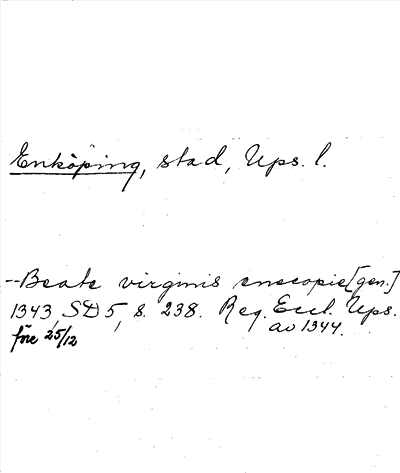 Enköping, stad, Ups. l.
--Beate virginis enecopie [gen.]
1343, SD 5, s. 238. Reg. Eccl. Ups.
före 25/12 av 1344.